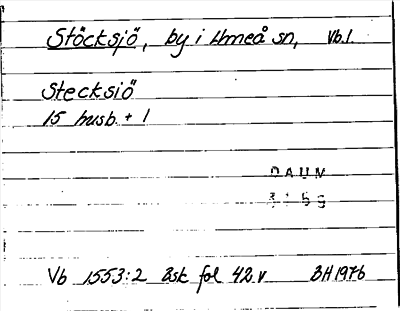 Stöcksjö, by i Umeå sn, Vb.l.
Stecksiö
15 husb. + 1
DAUM
Vb 1553:2 Bsk fol 42.v BH 1976